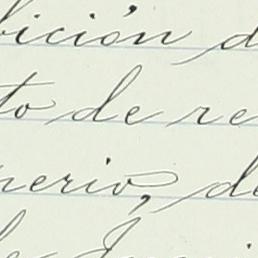 bición d
to de re
nerio, de
de